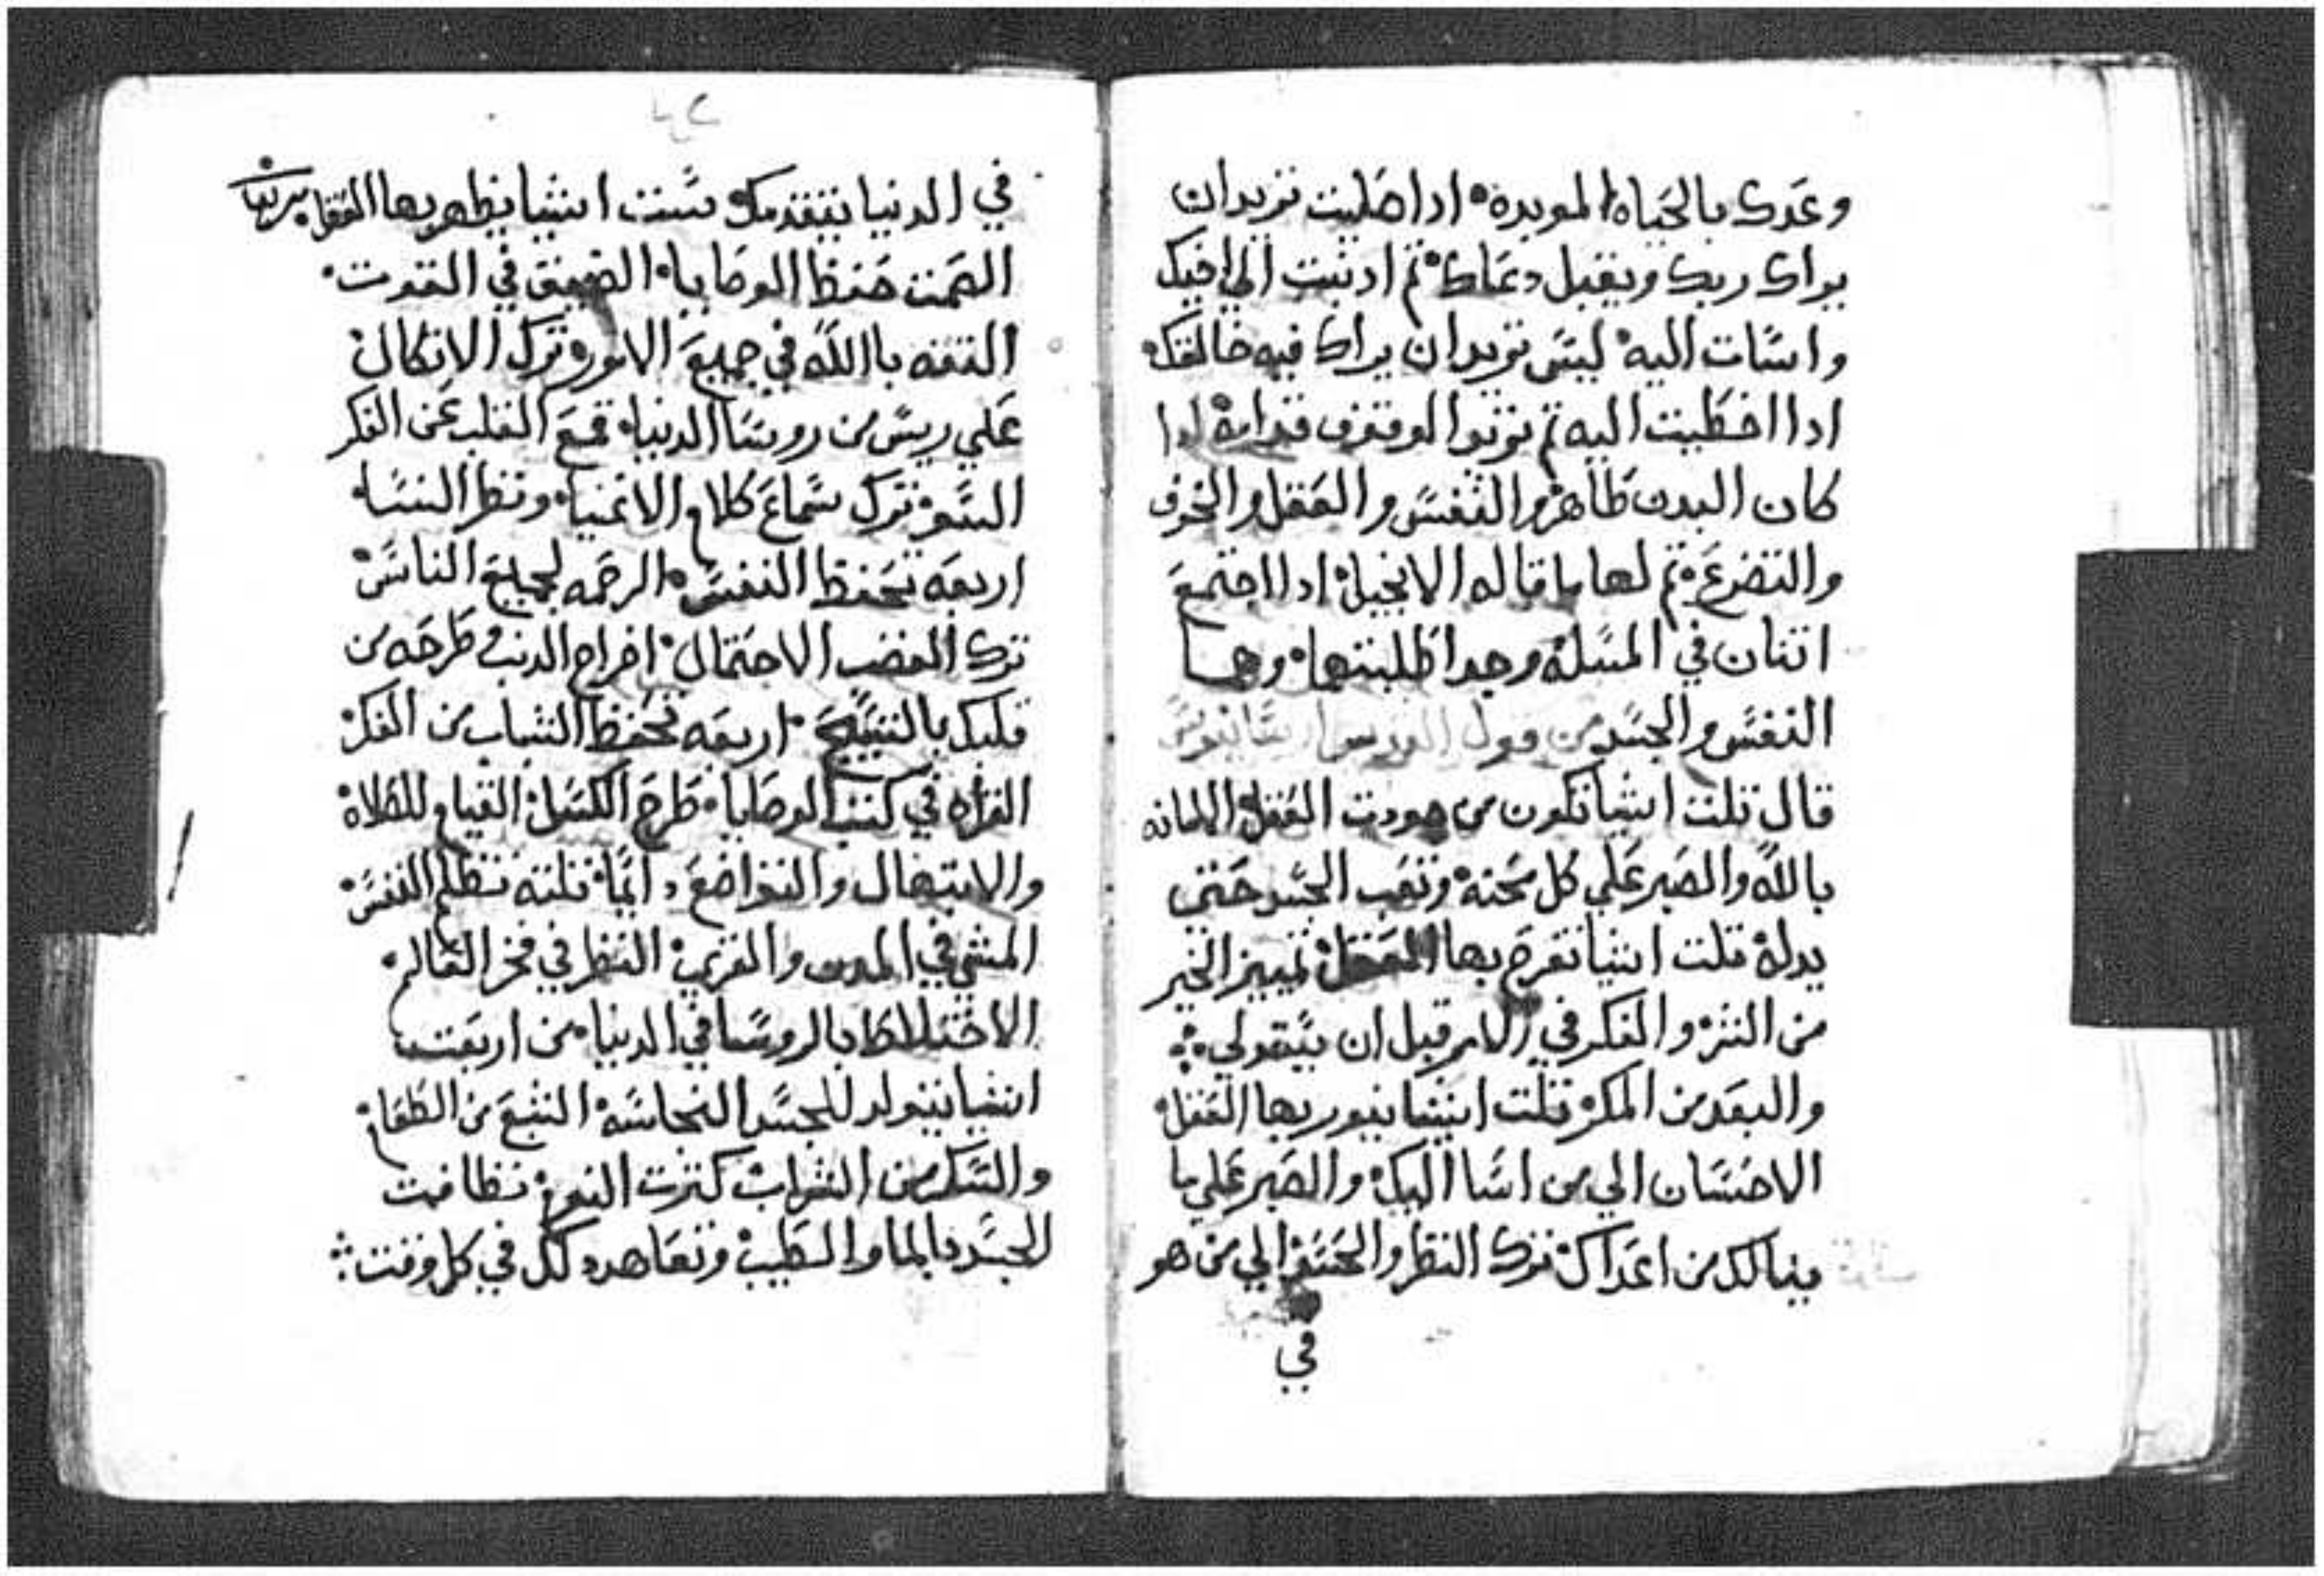 وعدك بالحياه الموبدة اداصليت تريد ان
يراك ربك ويقبل دعاك تم ادنيت الي اخيك
واسات اليه ليس تريد ان يراك فيه خالقك
ادا اخطيت اليه تم
كان البدن طاهر والنفس والعقل والخوف
والتضرع تم لها ما قاله الانجيل ادا اجتمع
اتنان في المسله وجدا طلبتهما وهما
النفس والجسد من قول القديس
قال تلت اشيا تكون من العقل الامانه
بالله والصبر علي كل محنه وتعب الجسد حتي
يدله تلت اشيا تفرح بها العقل تمييز الخير
من الشر والفكر في الامر قبل ان
والبعد من المكر تلت اشيا ينور بها العقل
الاحسان الي من اسا اليك والصبر علي ما
ينالك من اعداك ترك النظر الي من هو
في
في الدنيا يتقدمك ست اشيا يطهر بها العقل
الصمت حفظ الوصايا الضيق في القوت
التقه باالله في جميع الامور ترك الاتكال
علي ريس من روسا الدنيا قمع القلب عن الفكر
السو ترك سماع كلام الاغنيا ونظر النسا
اربعه تحفظ النفس الرحمه لجميع الناس
ترك الغضب الاحتمال اخراج الدنب وطرحه من
قلبك بالتسبيح اربعه تحفظ الشباب من الفكر
القراه في كتب الوصايا طرح الكسل القيام للصلاة
والابتهال والتواضع تلته تظلم النفس
المشي في المدن والقري النظر في فخر العالم
الاختلاط بالروسا في الدنيا من اربعت
اشيا يتولد للجسد النجاسه الشبع من الطعام
والسكر من الشراب كترت النوم نظافت
الجسد بالما والطيب وتعاهد دلك في كل وقت